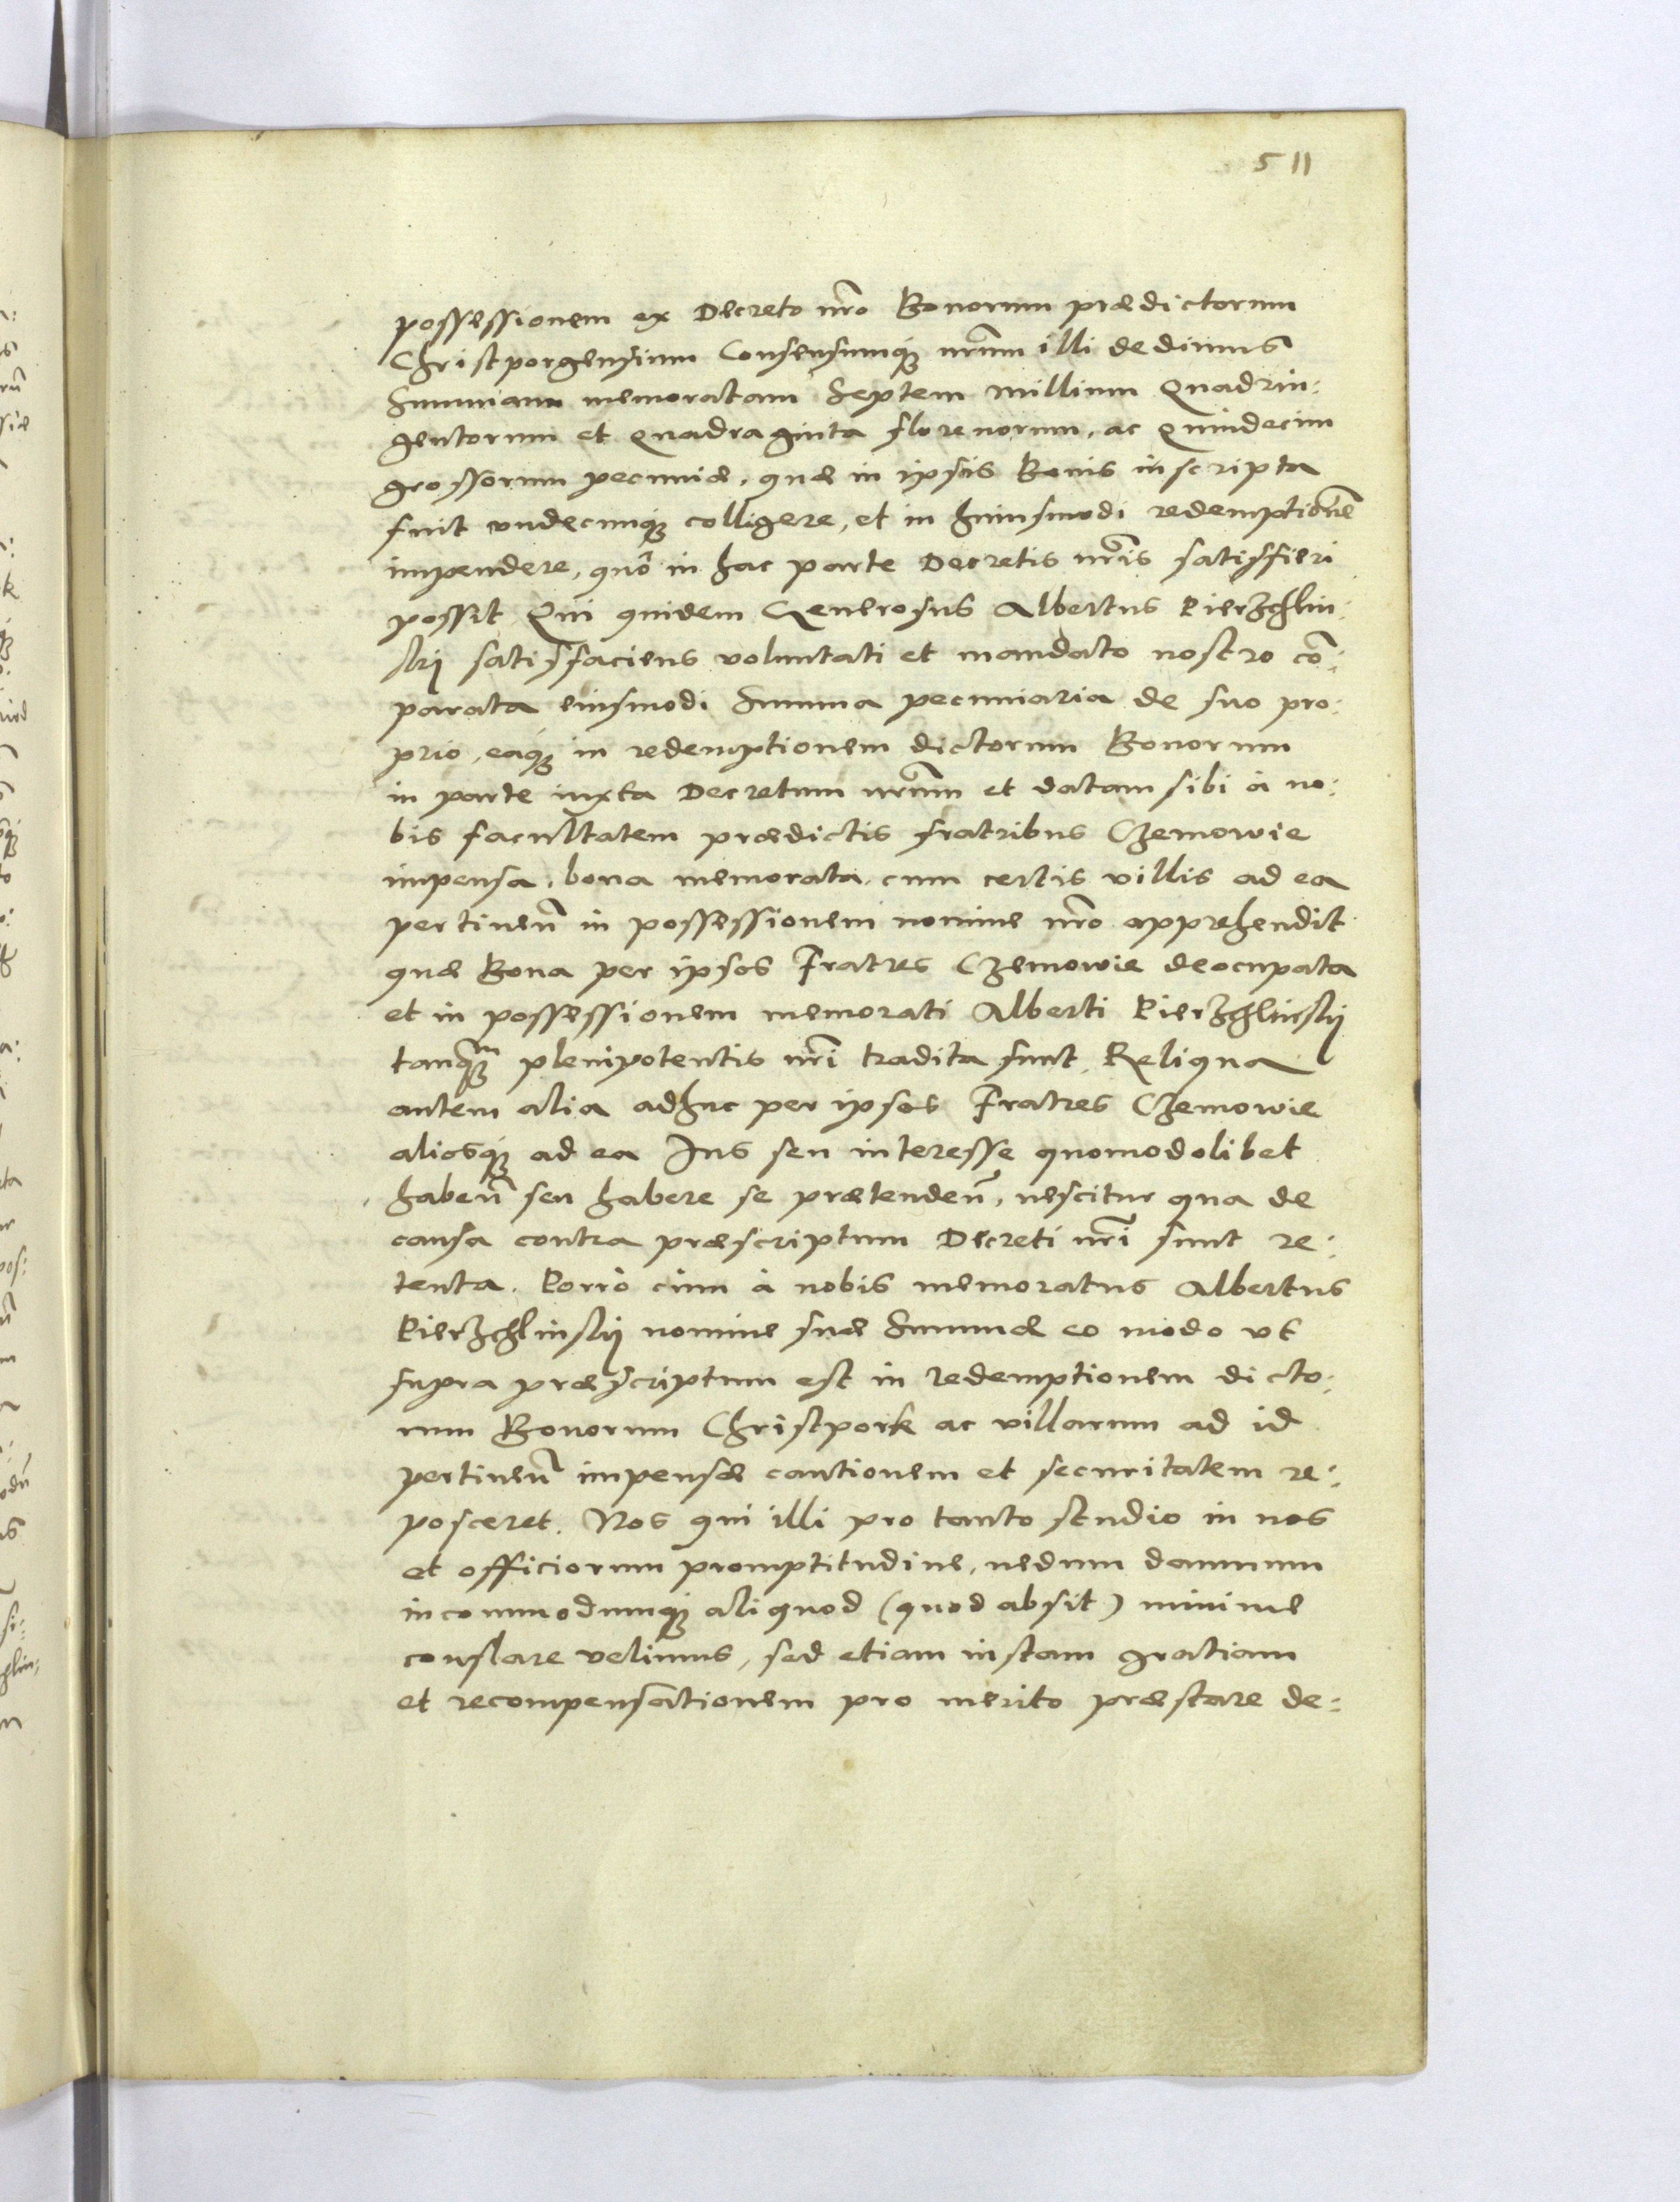 511
possessionem ex Decreto nr̃o Bonorum prædictorum
Christporgensium Consensumq́ꝫ nr̃um illi dedimus
Summam memoratam Septem millium Quadrin:
gentorum et Quadraginta florenorum, ac Quindecim
grossorum pecuniæ, quæ in ipsis Bonis inscripta
fuit undecunq́ꝫ colligere, et in huiusmodi redemptionẽ
impendere, quõ in hac parte Decretis nr̃is satisfieri
possit Qui quidem Generosus Albertus Pierzchlin:
skij satisfaciens voluntati et mandato nostro cõ:
parata eiusmodi Summa pecuniaria de suo pro:
prio, eáq́ꝫ in redemptionem dictorum Bonorum
in parte iuxta Decretum nr̃um et datam sibi à no:
bis facultatem prædictis fratribus Czemowie
impensa, bona memorata cum certis villis ad ea
pertineñ in possessionem nomine nr̃o apprehendit
quæ Bona per ipsos Fratres Czemowie deocupata
et in possessionem memorati Alberti Pierzchlinskij
tanqꝫm plenipotentis nr̃i tradita sunt, Reliqua
autem alia adhuc per ipsos Fratres Czemowie
aliosq́ꝫ ad ea Ius seu interesse quomodolibet
habeñ seu habere se prætendeñ, nescitur qua de
causa contra præscriptum Decreti nr̃i sunt re:
tenta. Porrò cùm à nobis memoratus Albertus
Pierzchlinskij nomine suæ Summæ eo modo ut
supra præscriptum est in redemptionem dicto:
rum Bonorum Christpork ac villarum ad id
pertineñ impensæ cautionem et securitatem re:
posceret. Nos qui illi pro tanto studio in nos
et officiorum promptitudine, nedum damnum
incommodumq́ꝫ aliquod (quod absit) minime
conflare velimus, sed etiam iustam gratiam
et recompensationem pro merito præstare de: